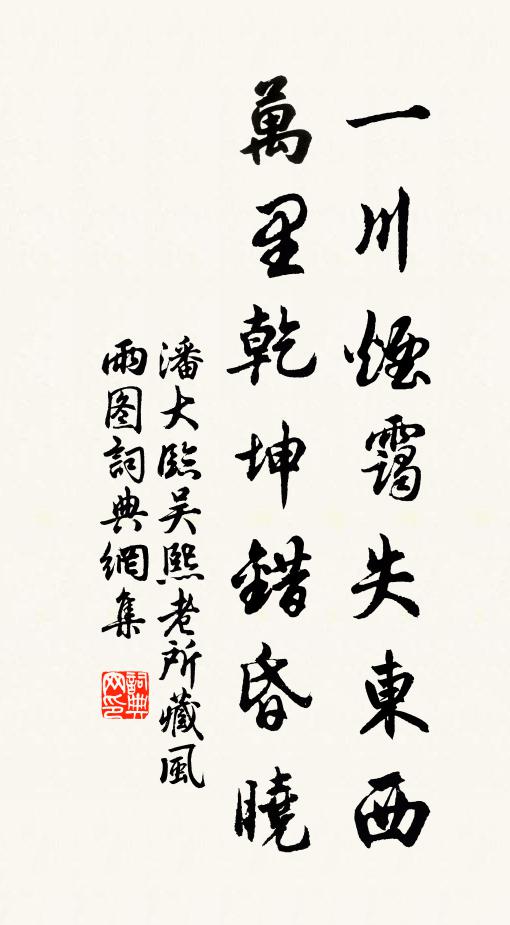 一川煙靄失東西
萬里乾坤錯昏曉
潘大臨吳熙老所藏風
雨图詞典網集
詞典网印